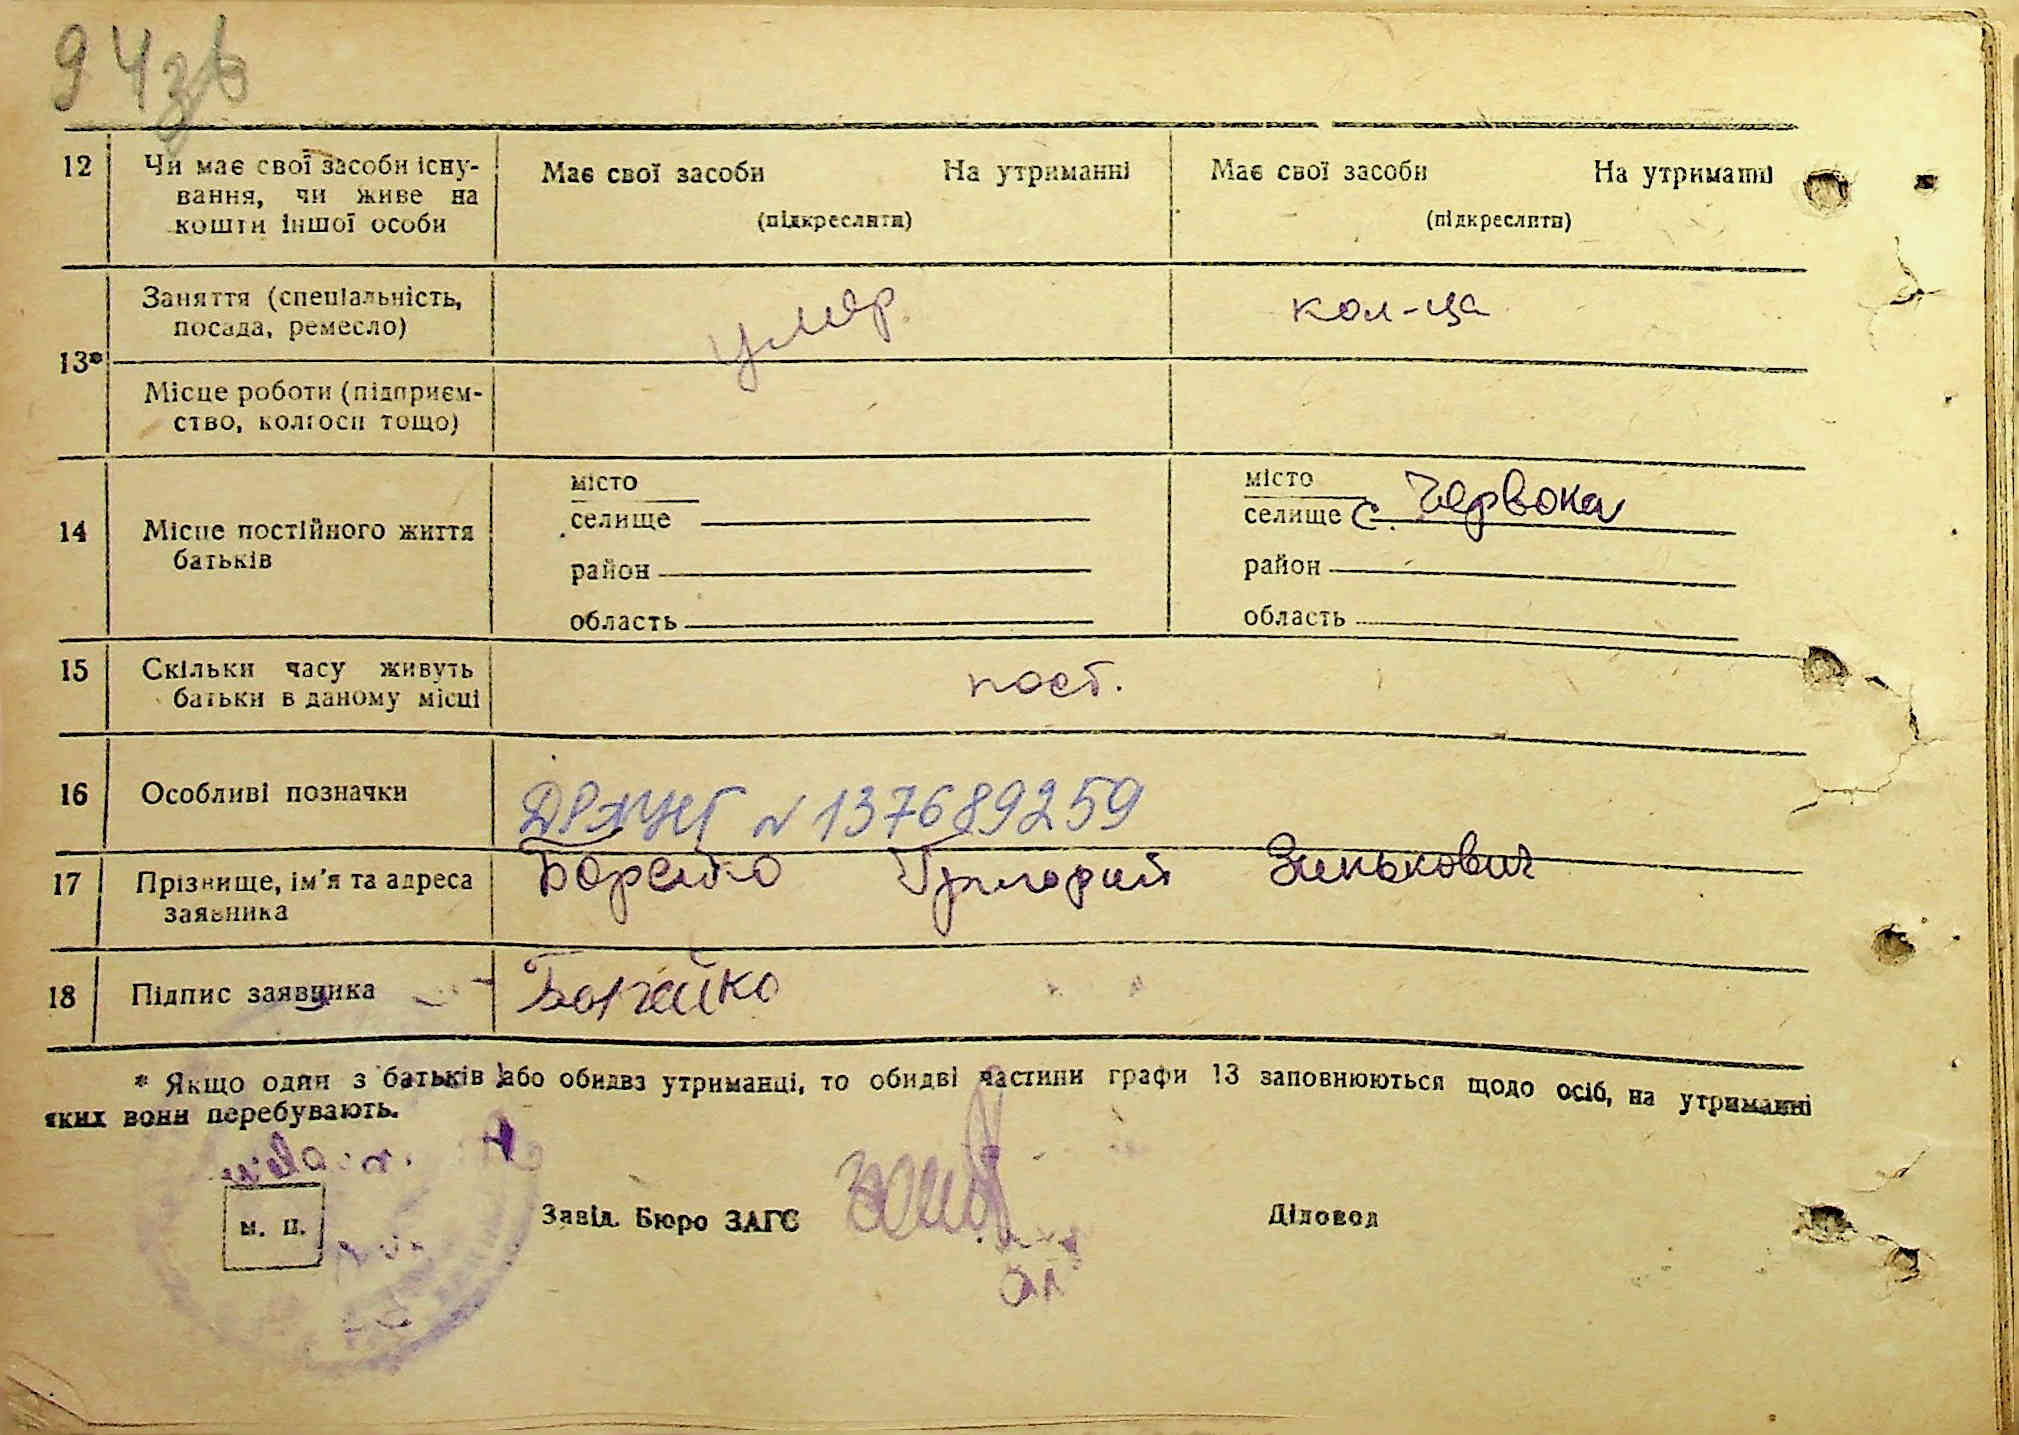 94зв
12 Чи має свої засоби існу- Має свої засоби На утриманні Має свої засоби На утриманні
вання, чи живе на
кошти іншої особи (підкреслити) (підкреслити)
Заняття (спеціальність, умер кол-ца
посада, ремесло)
13*
Місце роботи (підприєм-
ство, колгосп тощо)
місто місто
селище селище с. Червона
14 Місце постійного життя
батьків
район район
область область
15 Скільки часу живуть пост.
батьки в даному місці
16 Особливі позначки ДРАЦСГ N 137689259
17 Прізнище, ім'я та адреса Борейко Григорий Зинькович
заявника
18 Підпис заявника Борейко
* Якщо один з батьків або обидвз утриманці, то обидві частини графи 13 заповнюються щодо осіб, на утриманні
яких вони перебувають.
м. п. Завід. Бюро ЗАГС Діловод